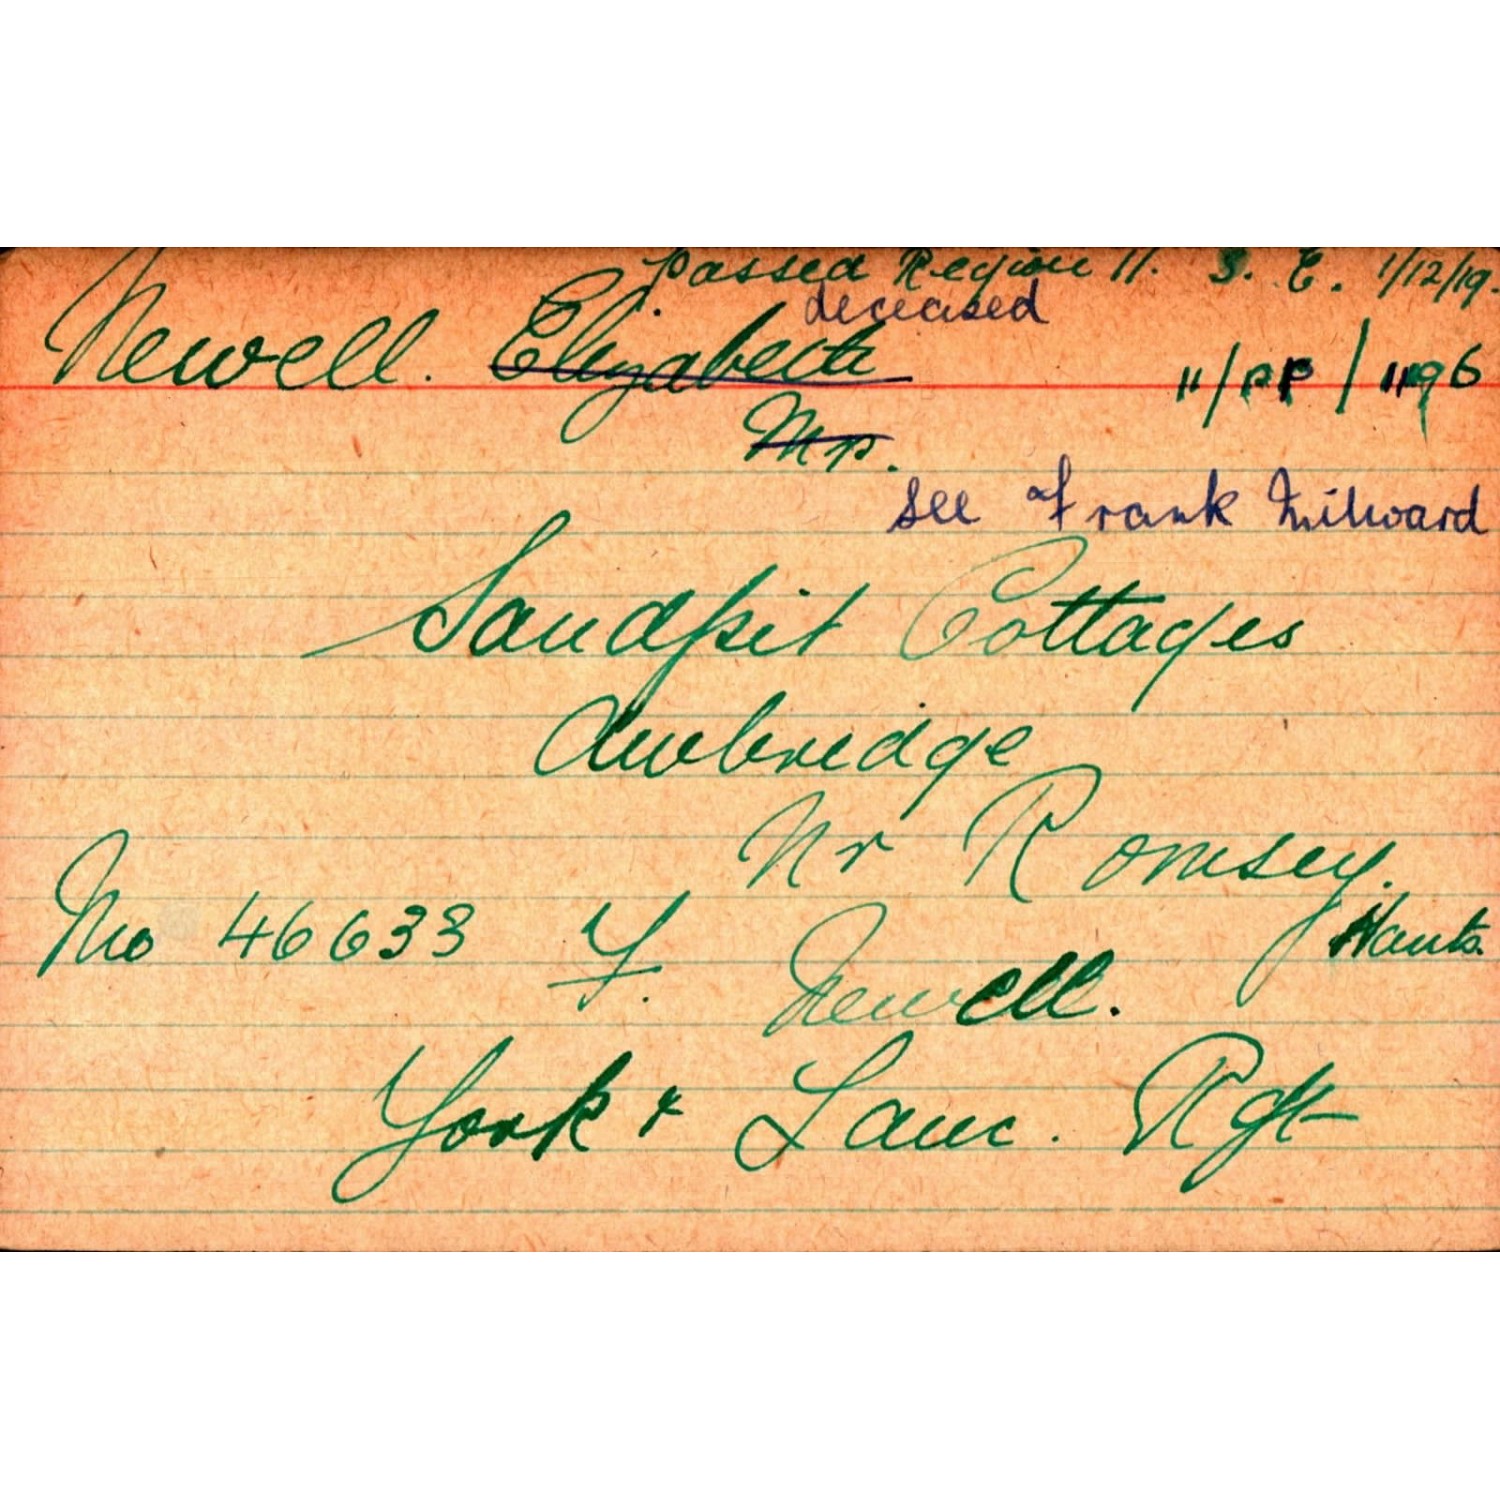 Passed Region 11. S. E. 1/12/19.
deceased
Newell. Elizabeth
11/PP/1196
Mrs.
see Frank Milward
Sandpit Cottages
Awbridge
Nr Romsey.
Hants.
No 46633 F. Newell.
York & Lanc. Rgt